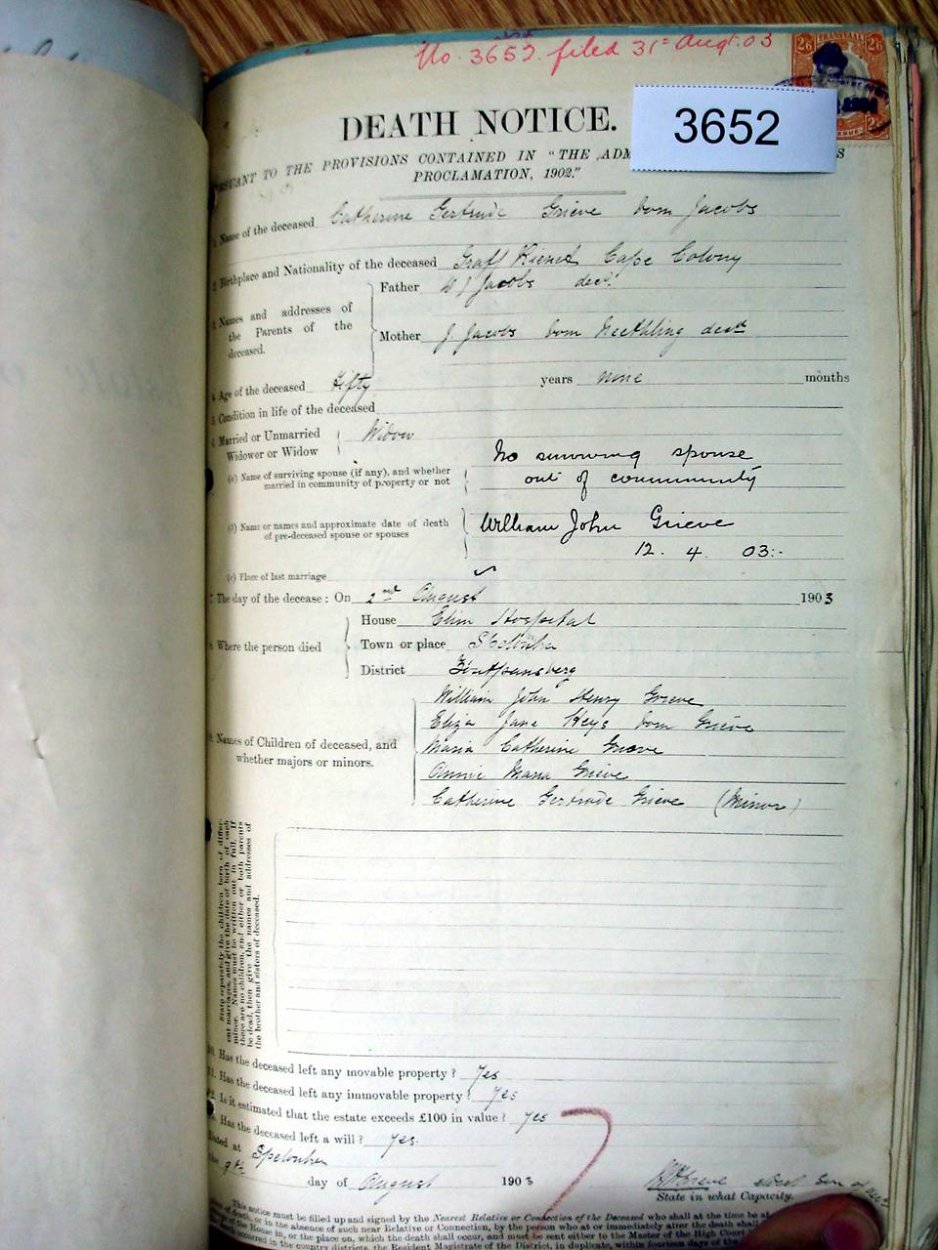 No. 3652. filed 31st Augt. 03
TRANSVAAL
2/6 2/6
3652
DEATH NOTICE.
PURSUANT TO THE PROVISIONS CONTAINED IN "THE ADM S
PROCLAMATION, 1902."
1. Name of the deceased Catherine Gertrude Grieve born Jacobs
2. Birthplace and Nationality of the deceased Graff Rienet Cape Colony
3. Names and addresses of the Parents of the deceased.
Father Jacobs decd
Mother J Jacobs born Neethling decd
4. Age of the deceased Fifty years none months
5. Condition in life of the deceased
6. Married or Unmarried
Widower or Widow Widow
(a) Name of surviving spouse (if any), and whether
married in community of property or not
No surviving spouse
out of community
(b) Name or names and approximate date of death
of pre-deceased spouse or spouses
William John Grieve
12. 4. 03:-
(c) Place of last marriage
7. The day of the decease: On 2nd August 1903
8. Where the person died
House Elim Hospital
Town or place Spelonken
District Zoutpansberg
9. Names of Children of deceased, and
whether majors or minors.
William John Henry Grieve
Eliza Jane Heys born Grieve
Maria Catherine Grieve
Annie Maria Grieve
Catherine Gertrude Grieve (Minor)
State separately the children born of differ-
ent marriages, and give the date of birth of each
minor. Names must be written out in full. If
there are no children, and either or both parents
be dead, then give the names and addresses of
the brother and sisters of deceased.
10. Has the deceased left any movable property? Yes
11. Has the deceased left any immovable property? Yes
12. Is it estimated that the estate exceeds £100 in value? Yes
13. Has the deceased left a will? Yes.
Dated at Spelonken
9th day of August 1903
Grieve eldest Son of
State in what Capacity.
This notice must be filled up and signed by the Nearest Relative or Connection of the Deceased who shall at the time be at
of death, or in the absence of such near Relative or Connection, by the person who at or immediately after the death shall
of the House in, or the place on, which the death shall occur, and must be sent either to the Master of the High Court
occurred in the country districts, the Resident Magistrate of the District, in duplicate, within fourteen days of the